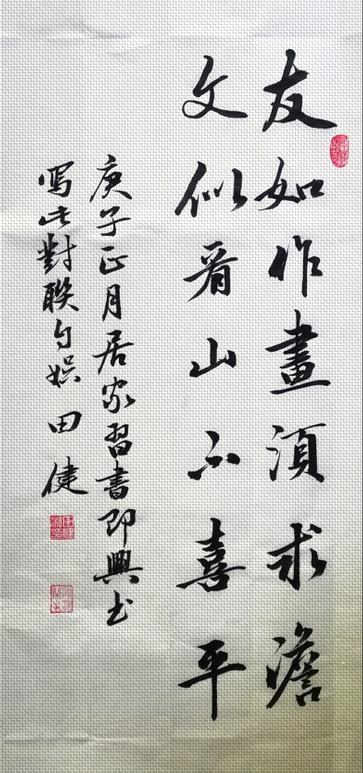 友如作畫須求澹
文似看山不喜平
庚子正月居家習書即興书
寫此對聯自娯 田健